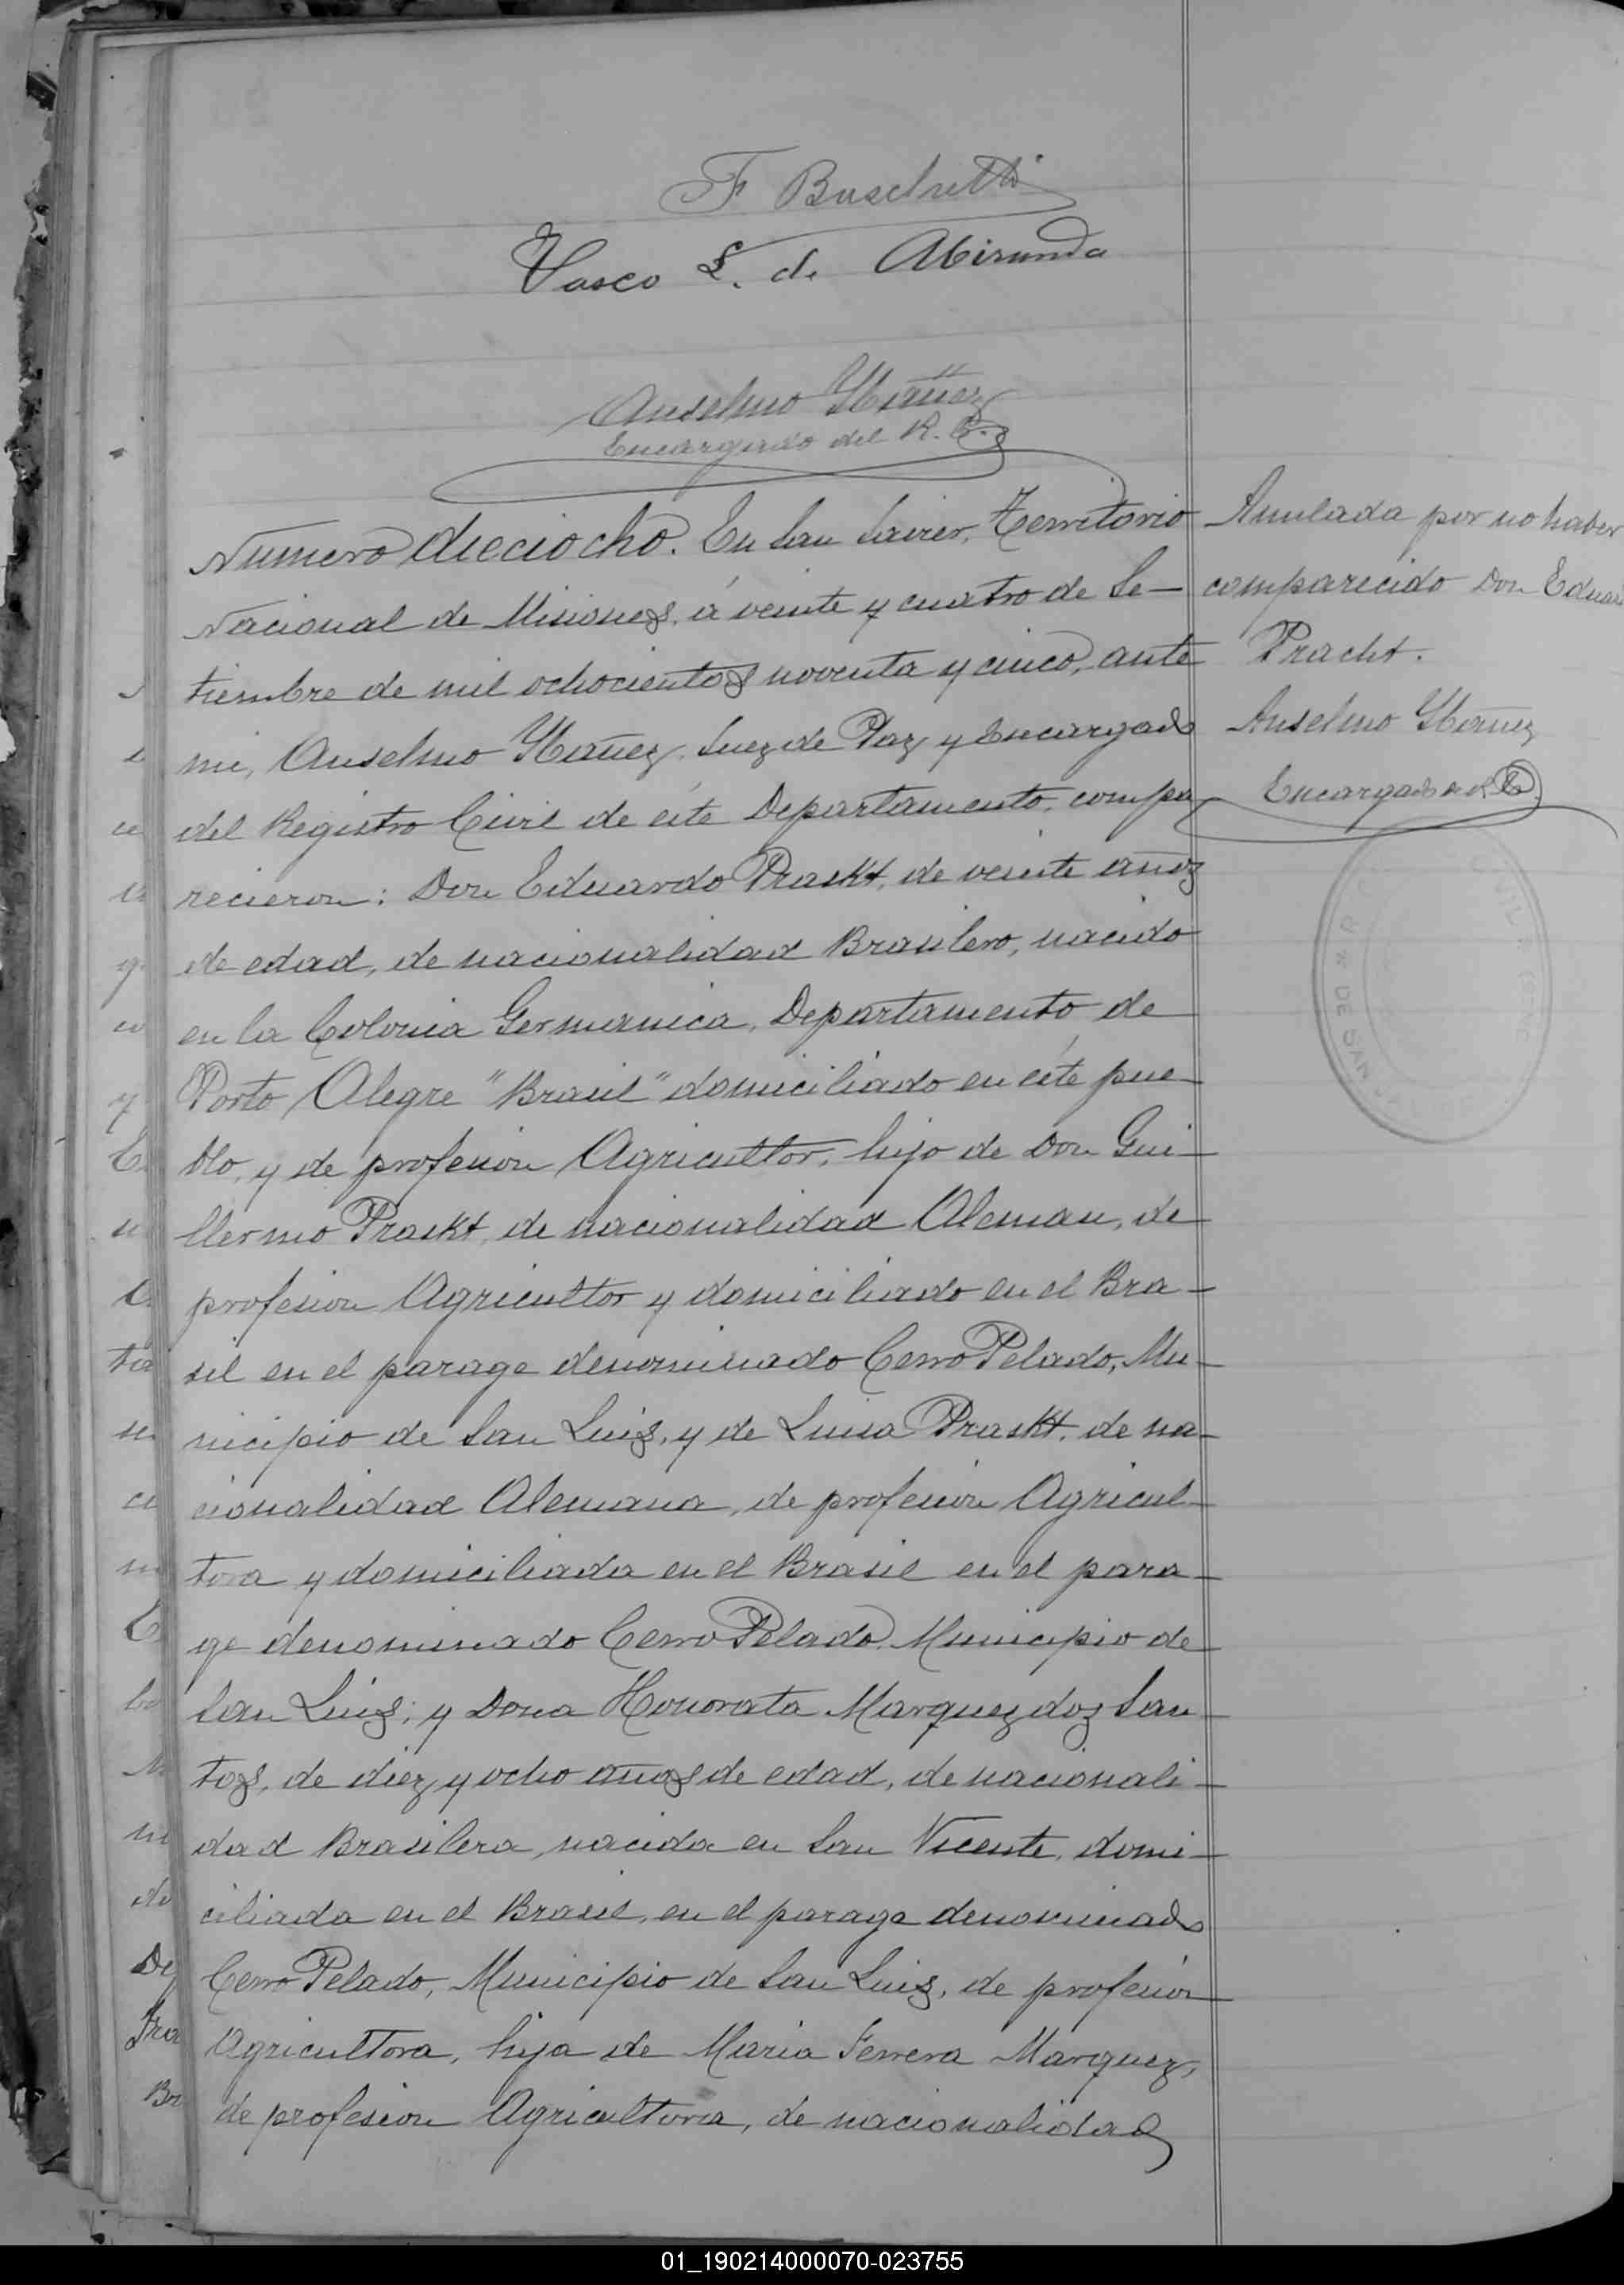 F Buschetti
Vasco L. de Miranda
Anselmo Ybañez
Encargado del R. C.
Numero dieciocho. En San Javier, Territorio
Nacional de Misiones, á veinte y cuatro de Se-
tiembre de mil ochocientos noventa y cinco, ante
mi, Anselmo Ybañez, Juez de Paz y Encargado
del Registro Civil de éste Departamento, compa
recieron: Don Eduardo Praskt, de veinte años
de edad, de nacionalidad Brasilero, nacido
en la Colonia Germanica, Departamento de
Porto Alegre "Brasil" domiciliado en éste pue-
blo, y de profesion Agricultor, hijo de Don Gui-
llermo Praskt, de nacionalidad Aleman, de
profesion Agricultor y domiciliado en el Bra-
sil en el parage denominado Cerro Pelado, Mu-
nicipio de San Luis, y de Luisa Praskt, de na-
cionalidad Alemana, de profesion Agricul-
tora y domiciliada en el Brasil en el para-
ge denominado Cerro Pelado, Municipio de
San Luis; y Dona Honorata Marquez dos San
tos, de diez y ocho años de edad, de nacionali-
dad Brasilera, nacida en San Vicente, domi-
ciliada en el Brasil, en el parage denominado
Cerro Pelado, Municipio de San Luis, de profesion
Agricultora, hija de Maria Ferrera Marquez,
de profesion Agricultora, de nacionalidad
Anulada por no haber
comparecido Don Eduar
Pracht.
Anselmo Ybañez
Encargado del R. C.
DE SAN JAVIER
01_190214000070-023755